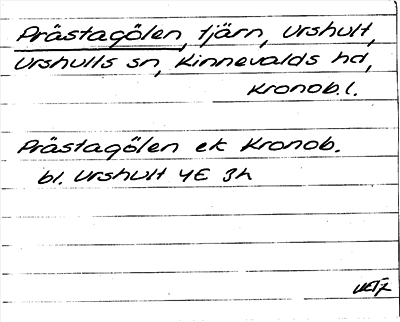 Prästagölen, tjärn, Urshult,
Urshults sn, Kinnevalds hd,
Kronob.l.
Prästagölen ek Kronob.
bl. Urshult 4E 3h